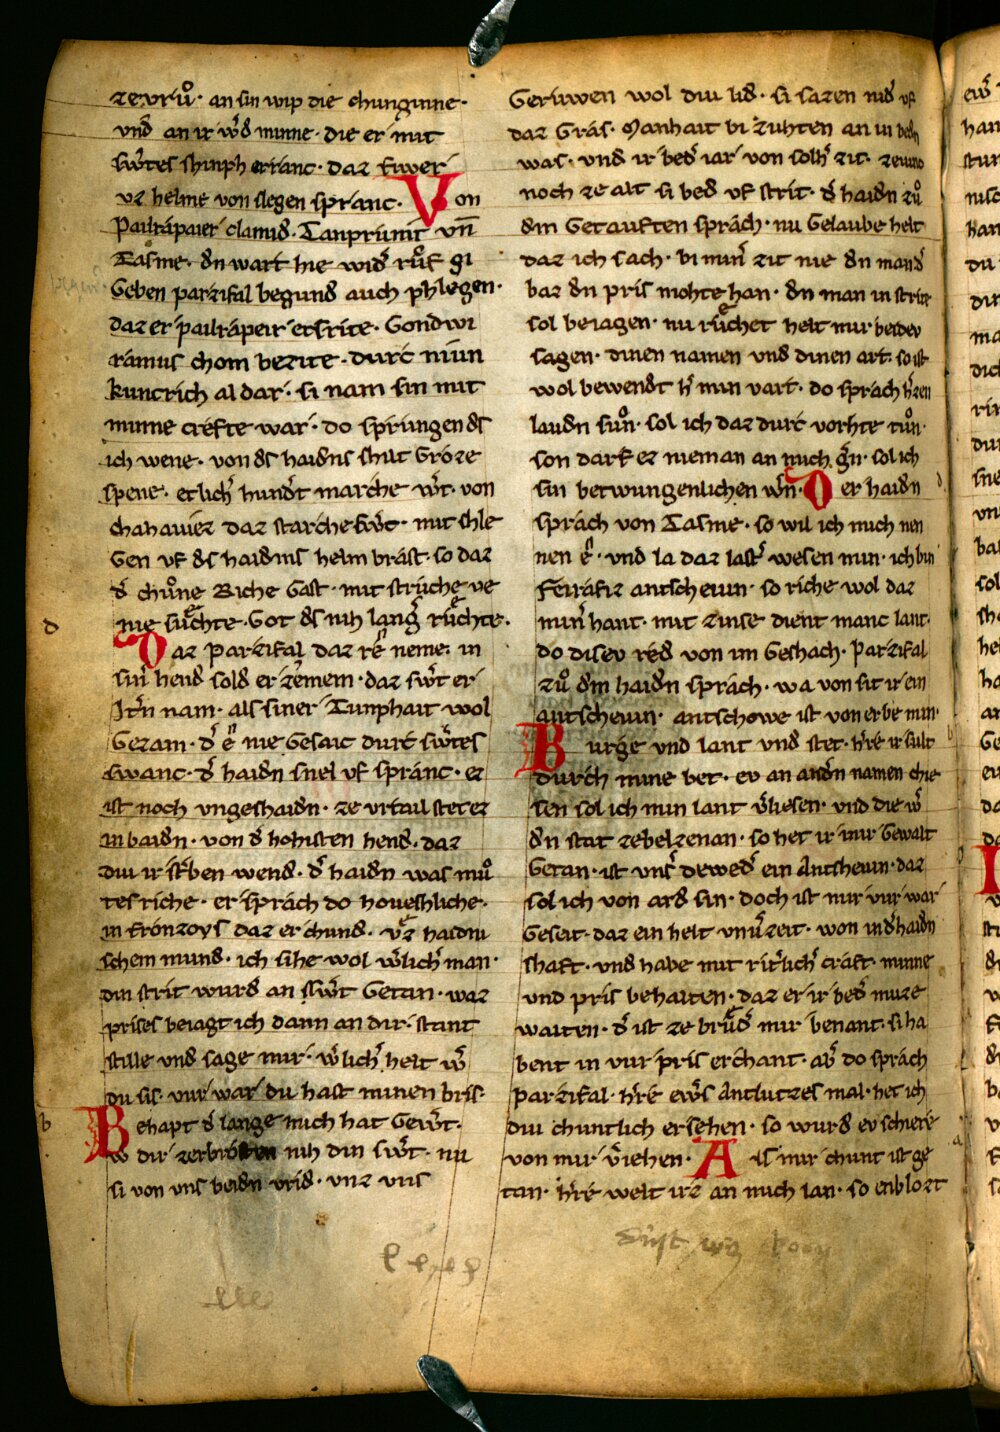 zevruͦ· an sin wip die chunginne·
vnd an ir w̄d minne· die er mit
sw̄tes shinph erranc· daz fiwer
vz helme von slegen spranc· Von
Pailrapaier clamid· Tanprunit vn̄
Tasme· dn wart hie wid̄ ruͦf gi
Geben parzifal begund auch phlegen·
daz er pailrapeir ersrite· Gondwi
ramus chom bezite· durc niun
kuncrich al dar· si nam sin mit
minne crefte war· do sprungen ds
ich wene· von ds haidns shilt Groze
spene· etlich̄ hundt marche w̄t· von
chahaviez daz starche sw̄t· mit shle
Gen vf ds haidnis helm brast· so daz
d̄ chuͦne Riche Gast· mit struche ve
nie suͤchte· Got ds nih lanḡ ruͤchte·
Daz Parzifal daz re neme· in
sin̄ hend sold er zemem· daz sw̄t er
Iern nam· als siner Tunphait wol
Gezam· d̄ e nie Gesaic durc sw̄tes
swanc· d̄ haidn snel vf spranc· ez
ist noch vngeshaidn· ze vrtail stet ez
in baidn· von d̄ hohisten hend· daz
diu ir st̄ben wend· d̄ haidn was muͦ
tes riche· er sprach do houeshliche·
in fronzoys daz er chund· vz haidni
schem mund· ich sihe wol w̄lich man·
din strit wurd an sw̄t Getan· waz
prises beiagt ich dann an dir· stant
stille vnd sage mir· w̄lich̄ helt w̄
du sis· viur war du hast minen bris·
Behapt d̄ lange mich hat Gew̄t·
w dir zerbrosten nih din sw̄t· nu
si von vns beidn vrid· vnz vns
Geruwen wol diu lid· si sazen nid vf
daz Gras· Manhait bi zuhten an in bedn
was· vnd ir bed iar von solh̄ zit· zewno
noch ze alt si bed vf strit· d̄ haidn zuͦ
dm Getauften sprach· nu Gelaube helt
daz ich sach· bi min̄ zit nie dn mand̄
baz dn pris mohte han· dn man in strite
sol beiagen· nu ruͤchet helt mir beidev
sagen· dinen namen vnd dinen art· so ist
wol bewendt h̄ min vart· do sprach h̄zen
laudn suͦn· sol ich daz durc vorhte tuͦn·
son darf ez nieman an mich ḡn· sol ich
sin betwungenlichen w̄n· Der haidn
sprach von Tasme· so wil ich mich nen
nen e· vnd la daz last̄ wesen min· ich bin
feirafiz antschevin· so riche wol daz
min̄ hant· mit zinse dient manc lant·
do disev red von im Geshach· Parzifal
zuͦ dm haidn sprach· wa von sit ir ein
antschevin· antschowe ist von erbe min·
Burge vnd lant vnd stet· h̄re ir sult
durch mine bet· ev an andn namen chie
sen sol ich min lant v̄liesen· vnd die w̄
dn stat zebelzenan· so het ir mir Gewalt
Getan· ist vns̄ dewed̄ ein Antshevin· daz
sol ich von ard sin· doch ist mir viur war
Geseit· daz ein helt vnūzeit· won in d̄ haidn
shaft· vnd habe mit rit̄lich craft· minne
vnd pris behalten· daz er ir bed muze
walten· d̄ ist ze bruͤd̄ mir benant· si ha
bent in viur pris erchant· ab̄ do sprach
Parzifal· h̄re ew̄s Antlutzes mal· het ich
diu chuntlich ersehen· so wurd ev schiere
von mir v̄iehen· Als mir chunt ist ge
tan· h̄re welt irz an mich lan· so enblozt